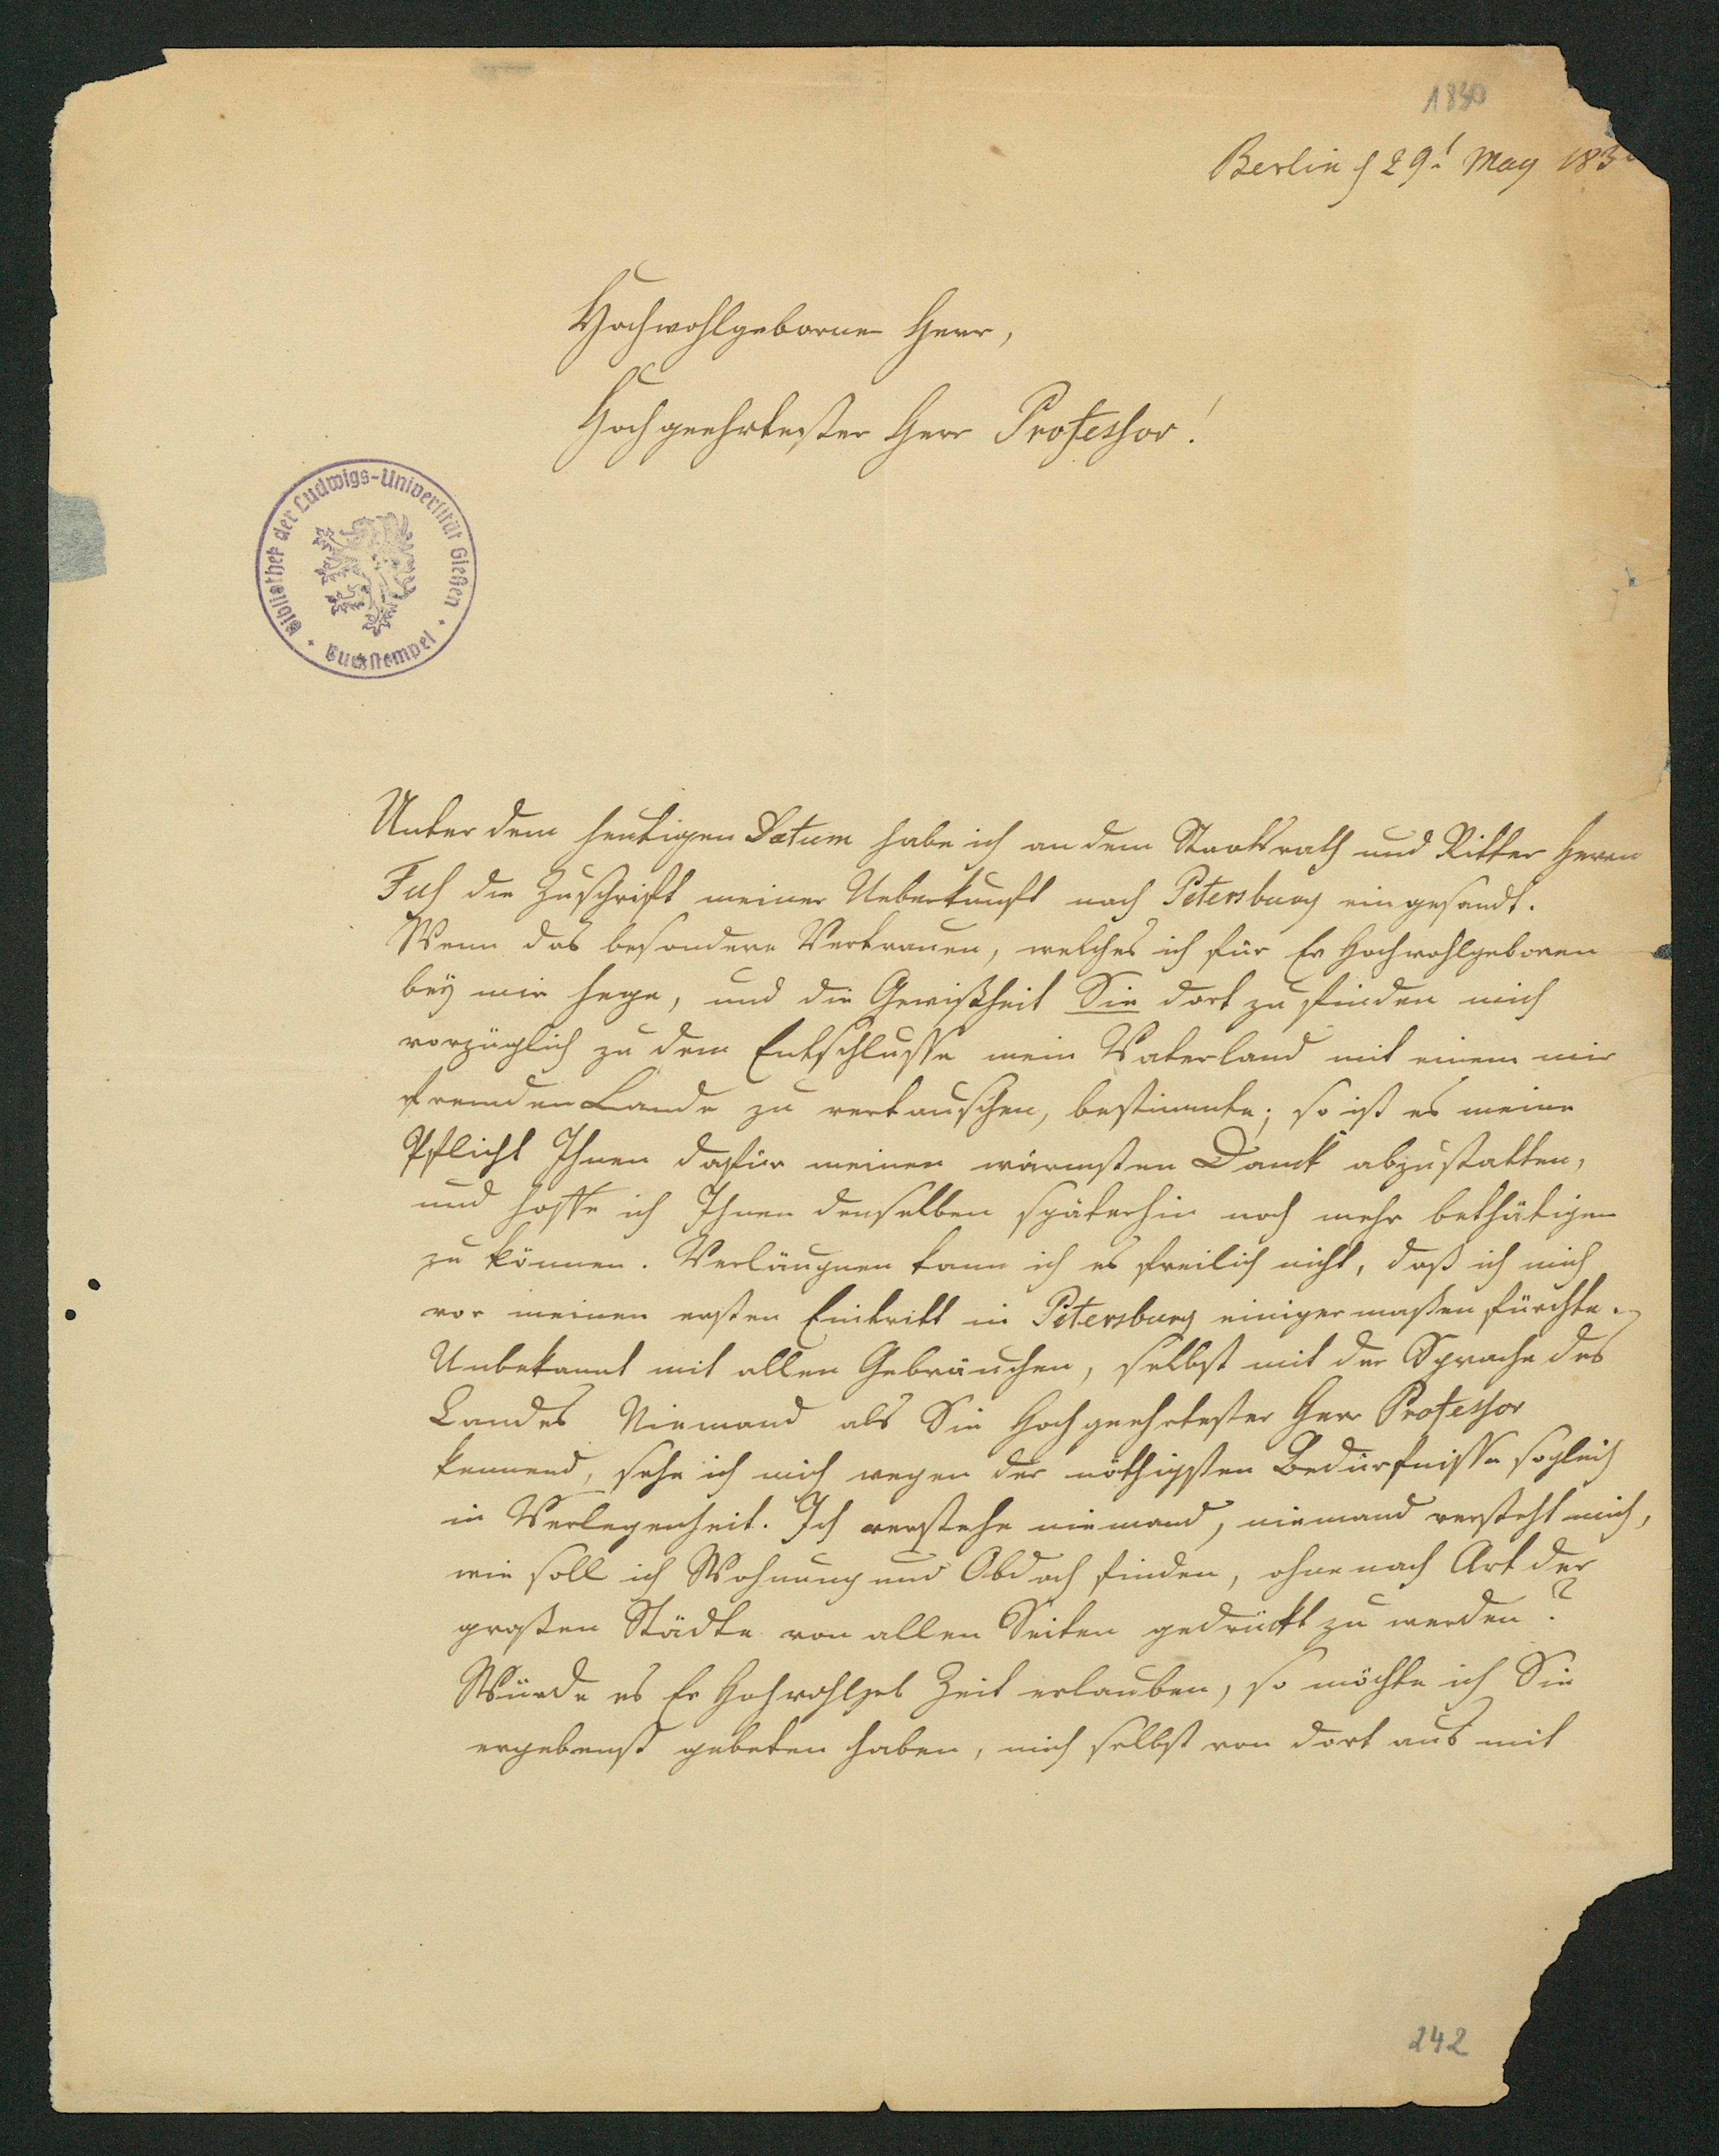 1830
Berlin d 29t May 183
Hochwohlgeborner Herr,
Hochgeehrtester Herr Professor!
Bibliothek der Ludwigs-Universität Gießen
Buchstempel
Unter dem heutigen Datum habe ich an dem Staatsrath und Ritter Herrn
Fuß die Zuschrift meiner Ueberkunft nach Petersburg eingesandt.
Wenn das besondere Vertrauen, welches ich für Ew Hochwohlgeboren
bey mir hege, und die Gewißheit Sie dort zu finden mich
vorzüglich zu dem Entschlusse mein Vaterland mit einem mir
fremden Lande zu vertauschen, bestimmte; so ist es meine
Pflicht Ihnen dafür meinen wärmsten Danck abzustatten,
und hoffe ich Ihnen denselben späterhin noch mehr bethätigen
zu können. Verläugnen kann ich es freilich nicht, daß ich mich
vor meinen ersten Eintritt in Petersburg einigermaßen fürchte.
Unbekannt mit allen Gebräuchen, selbst mit der Sprache des
Landes Niemand als Sie Hochgeehrtester Herr Professor
kennend, sehe ich mich wegen der nöthigsten Bedürfnisse sogleich
in Verlegenheit. Ich verstehe niemand, niemand versteht mich,
wie soll ich Wohnung und Obdach finden, ohne nach Art der
großen Städte von allen Seiten gedrückt zu werden?
Würde es Ew Hochwohlgeb Zeit erlauben, so möchte ich Sie
ergebenst gebeten haben, mich selbst von dort aus mit
242